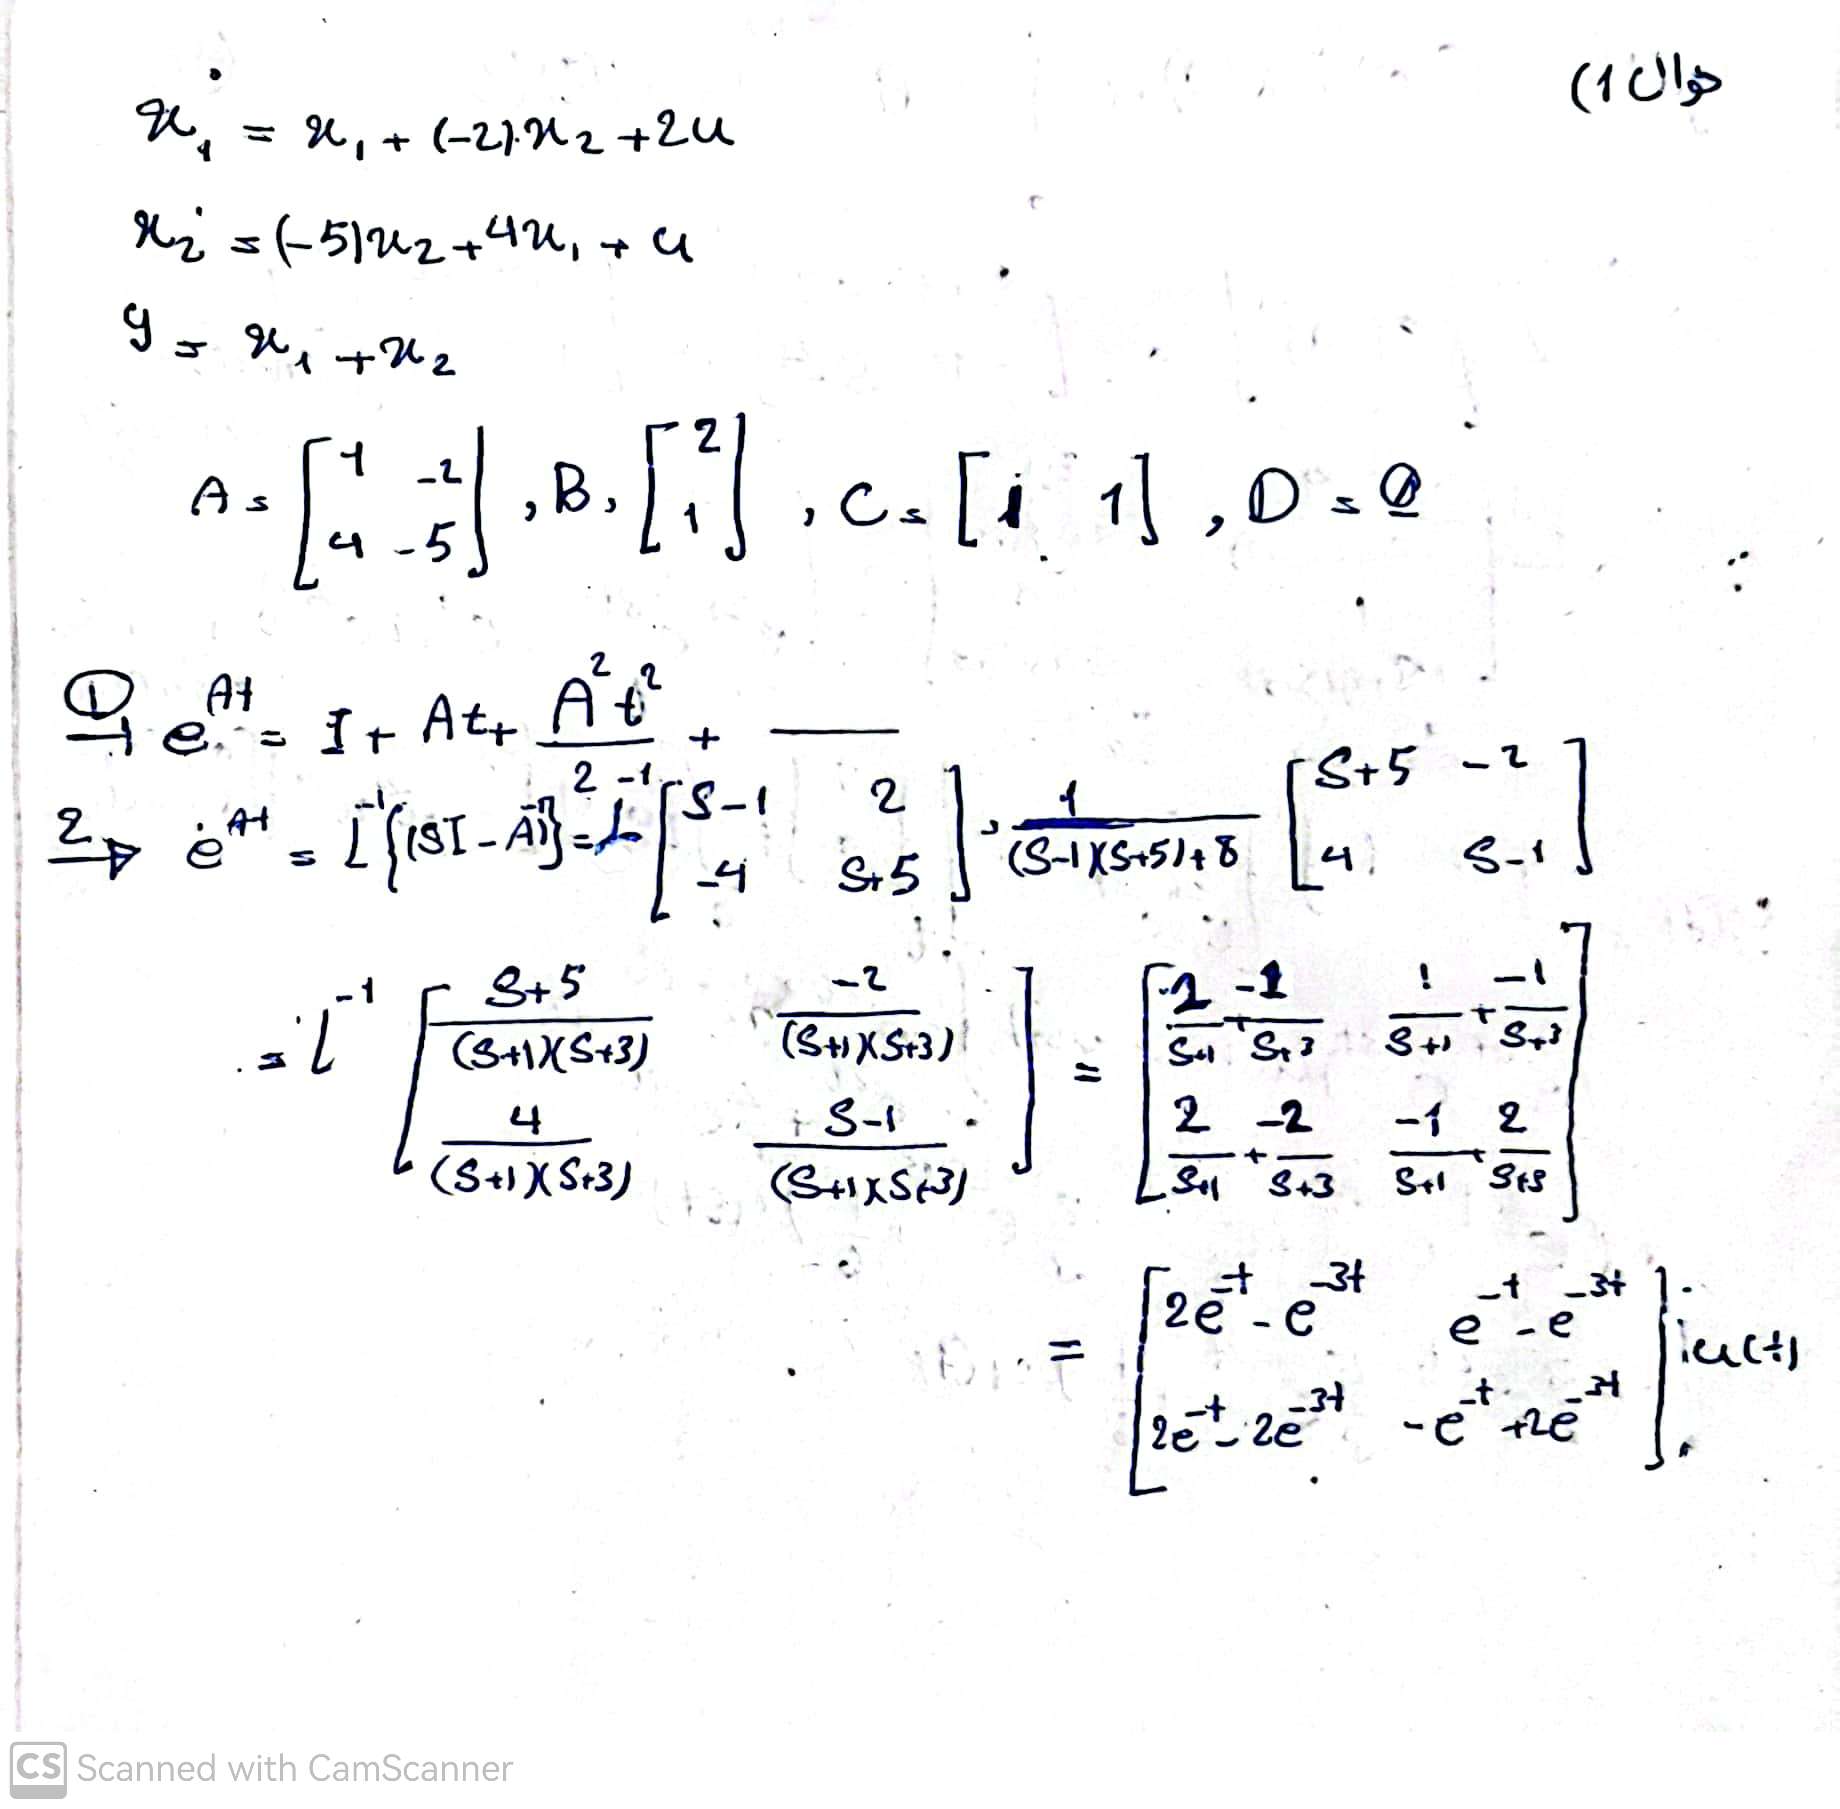 سوال 1)
ẋ₁ = x₁ + (-2).x₂ + 2u
ẋ₂ = (-5)x₂ + 4x₁ + u
y = x₁ + x₂
A = [1 -2; 4 -5] , B = [2; 1] , C = [1 1] , D = 0
① → e^{At} = I + At + A²t²/2 + —
2 → e^{At} = L⁻¹{(SI - A)⁻¹} = L⁻¹ [S-1 2; -4 S+5] , 1/((S-1)(S+5)+8) [S+5 -2; 4 S-1]
= L⁻¹ [(S+5)/((S+1)(S+3)) -2/((S+1)(S+3)); 4/((S+1)(S+3)) (S-1)/((S+1)(S+3))] = [2/(S+1) + -1/(S+3) 1/(S+1) + -1/(S+3); 2/(S+1) + -2/(S+3) -1/(S+1) + 2/(S+3)]
= [2e^{-t} - e^{-3t} e^{-t} - e^{-3t}; 2e^{-t} - 2e^{-3t} -e^{-t} + 2e^{-3t}] ; u(t)
CS Scanned with CamScanner